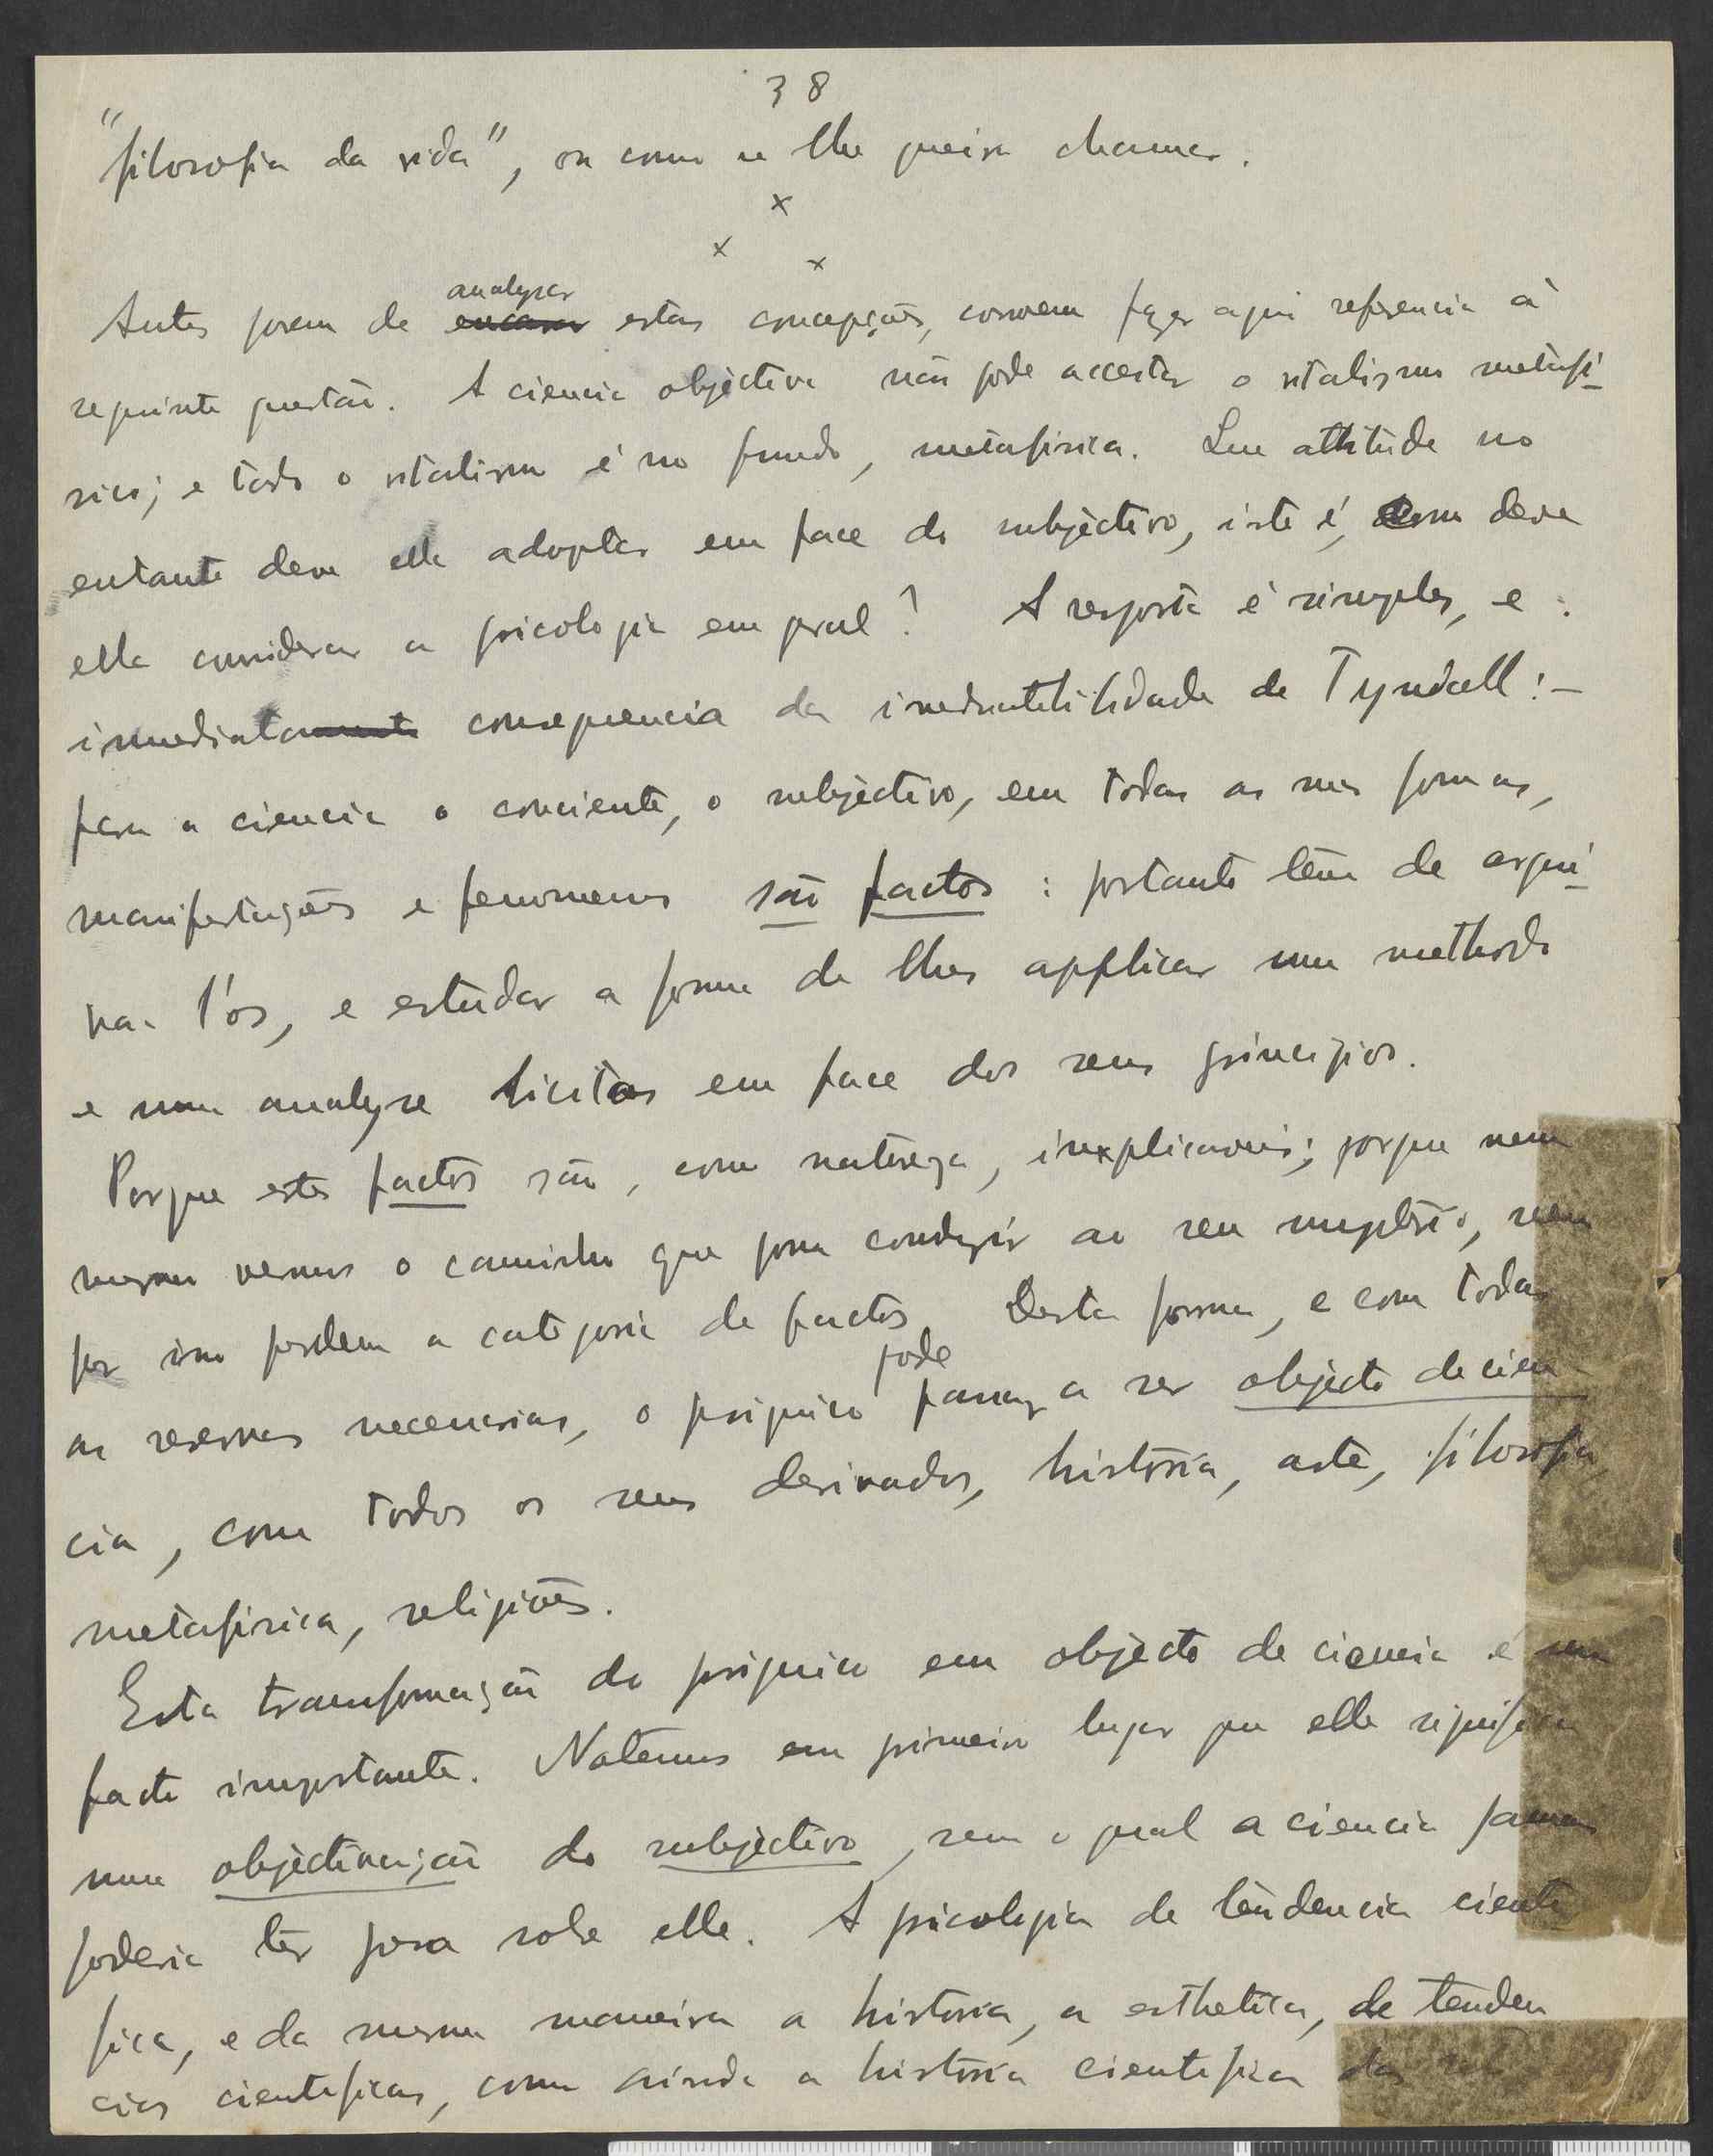 38
"filosofia da vida", ou como se lhe queira chamar.
x
x x
analysar
Antes porem de encarar estas concepções, convem fazer aqui referencia á
seguinte questão. A ciencia objectiva não pode acceitar o vitalismo metafi-
sico; e todo o vitalismo é no fundo, metafisica. Que attitude no
entanto deve ella adoptar em face do subjectivo, isto é, como deve
ella considerar a psicologia em geral? A resposta é simples, e
immediatamente consequencia da irreductibilidade de Tyndall:-
para a ciencia o conciente, o subjectivo, em todas as suas formas,
manifestações e fenomenos são factos: portanto tem de arqui-
va-l'os, e estudar a forma de lhes applicar um methodo
e uma analyse licitas em face dos seus principios.
Porque estes factos são, como natureza, inexplicaveis; porque nem
mesmo vemos o caminho que possa conduzir ao seu mysterio, nem
por isso perdem a categoria de factos. Desta forma, e com todas
pode
as reservas necessarias, o psiquico passar a ser objecto de cien-
cia, com todos os seus derivados, historia, arte, filosofia,
metafisica, religiões.
Esta transformação do psiquico em objecto de ciencia é um
facto importante. Notemos em primeiro lugar que elle significa
uma objectivação do subjectivo, sem o qual a ciencia jamais
poderia ter posse sobre elle. A psicologia de tendencia cienti
fica, e da mesma maneira a historia, a esthetica, de tenden
cias cientificas, como ainda a historia cientifica das